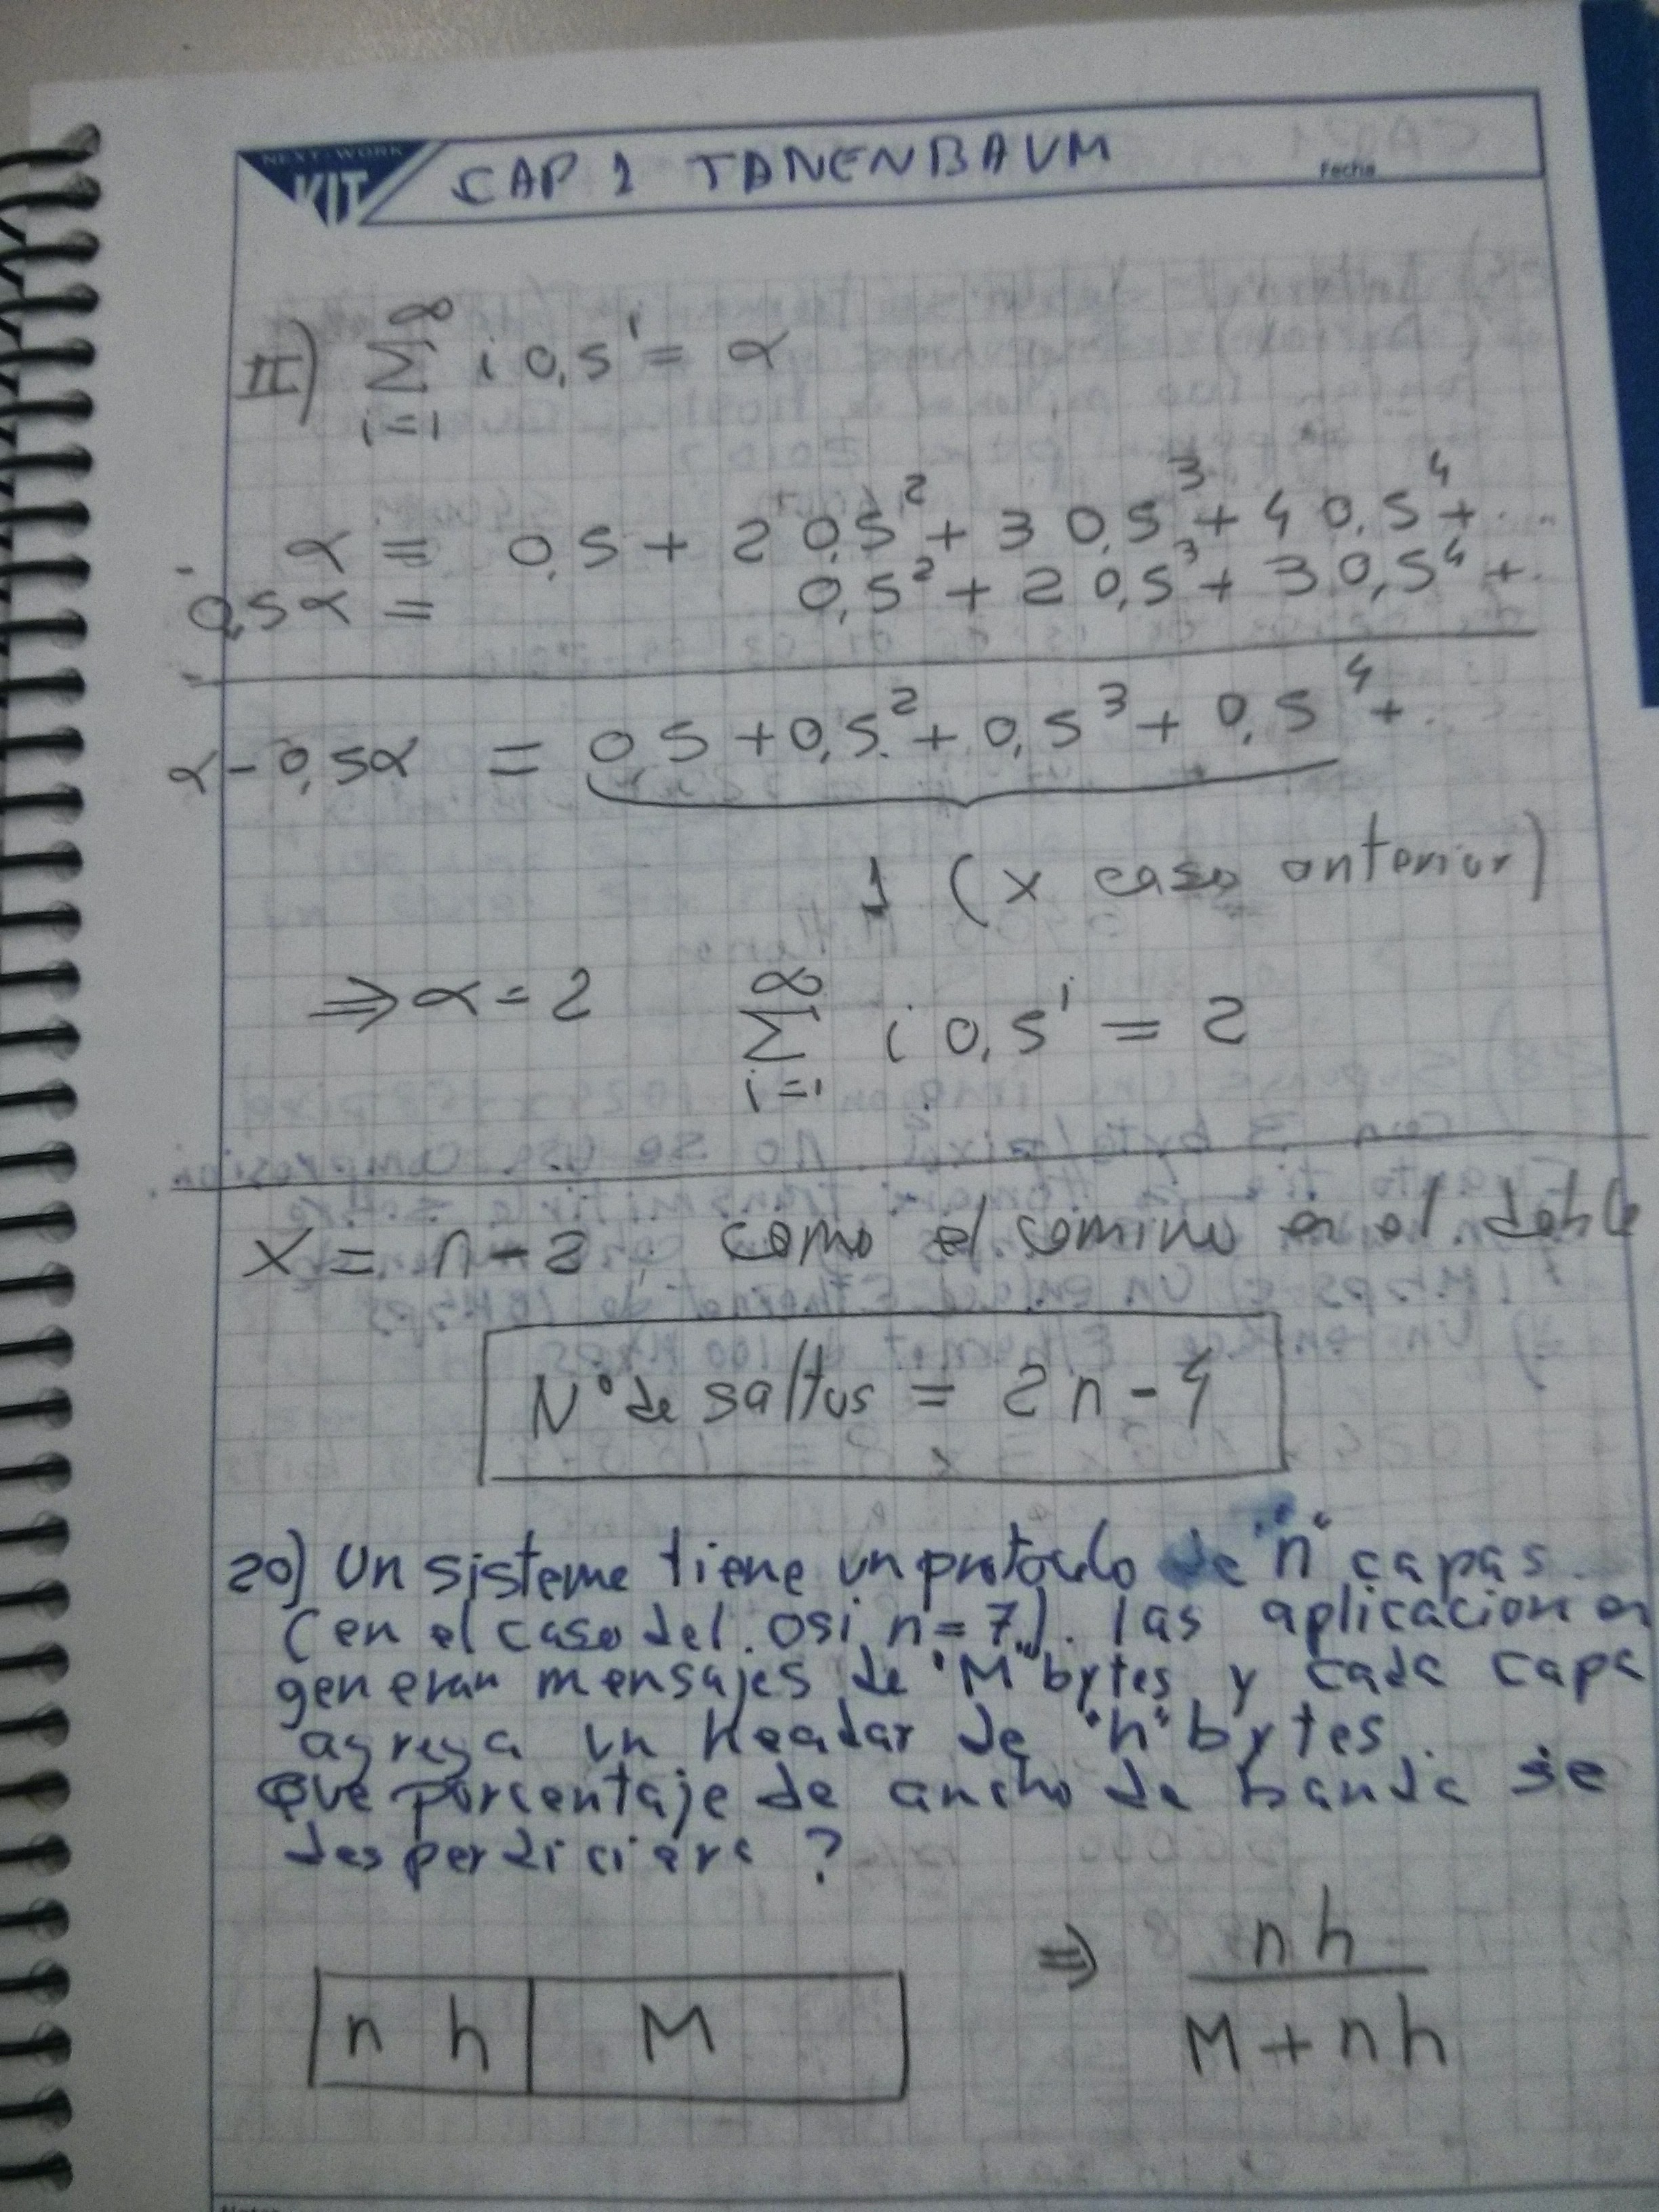 NEXT-WORK
KIT
CAP 1 TANENBAUM
Fecha
II) ∑ i=1 ∞ i 0,5^i = α
α = 0,5 + 2 0,5^2 + 3 0,5^3 + 4 0,5^4 + ...
0,5α = 0,5^2 + 2 0,5^3 + 3 0,5^4 + ..
α - 0,5α = 0,5 + 0,5^2 + 0,5^3 + 0,5^4 + ..
1 (x caso anterior)
⇒ α = 2 ∑ i=1 ∞ i 0,5^i = 2
X = n - 2 ; como el camino es el doble
N° de saltos = 2n - 4
20) Un sisteme tiene un protoclo de "n" capas
(en el caso del OSI n = 7). las aplicacion es
generan mensajes de "M" bytes y cada capa
agrega un Headar de "h" bytes.
Que porcentaje de ancho de banda se
desperdiciara ?
n h | M ⇒ nh / M + nh